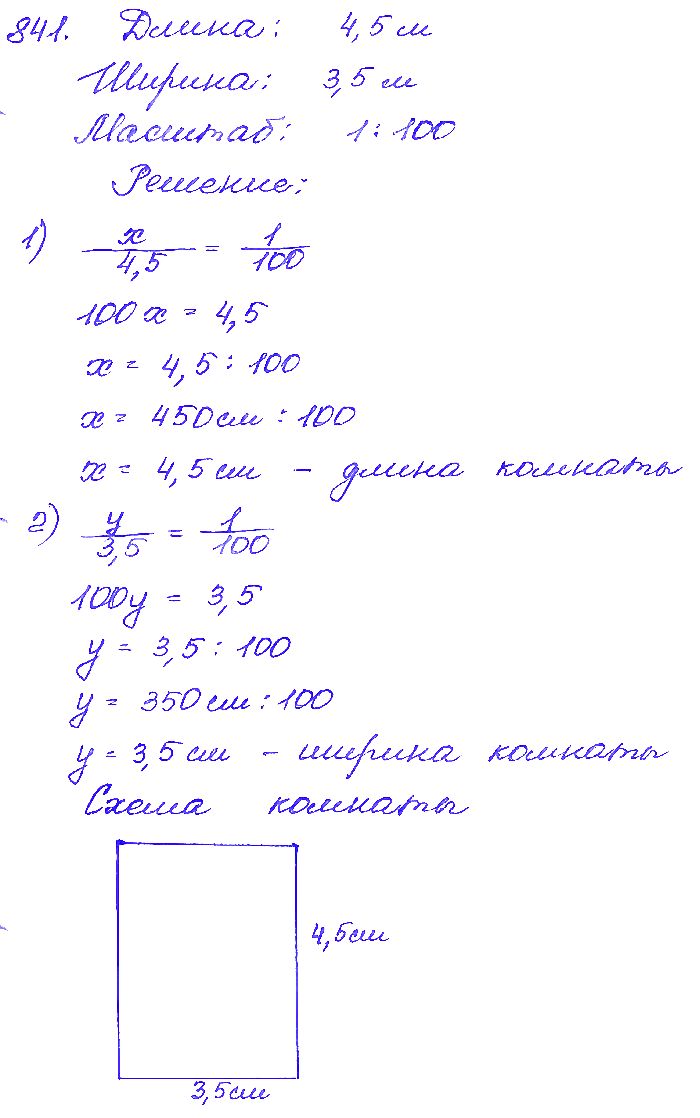 841. Длина: 4,5 м
Ширина: 3,5 м
Масштаб: 1 : 100
Решение:
1) x/4,5 = 1/100
100 x = 4,5
x = 4,5 : 100
x = 450 см : 100
x = 4,5 см - длина комнаты
2) y/3,5 = 1/100
100y = 3,5
y = 3,5 : 100
y = 350 см : 100
y = 3,5 см - ширина комнаты
Схема комнаты
4,5см
3,5см